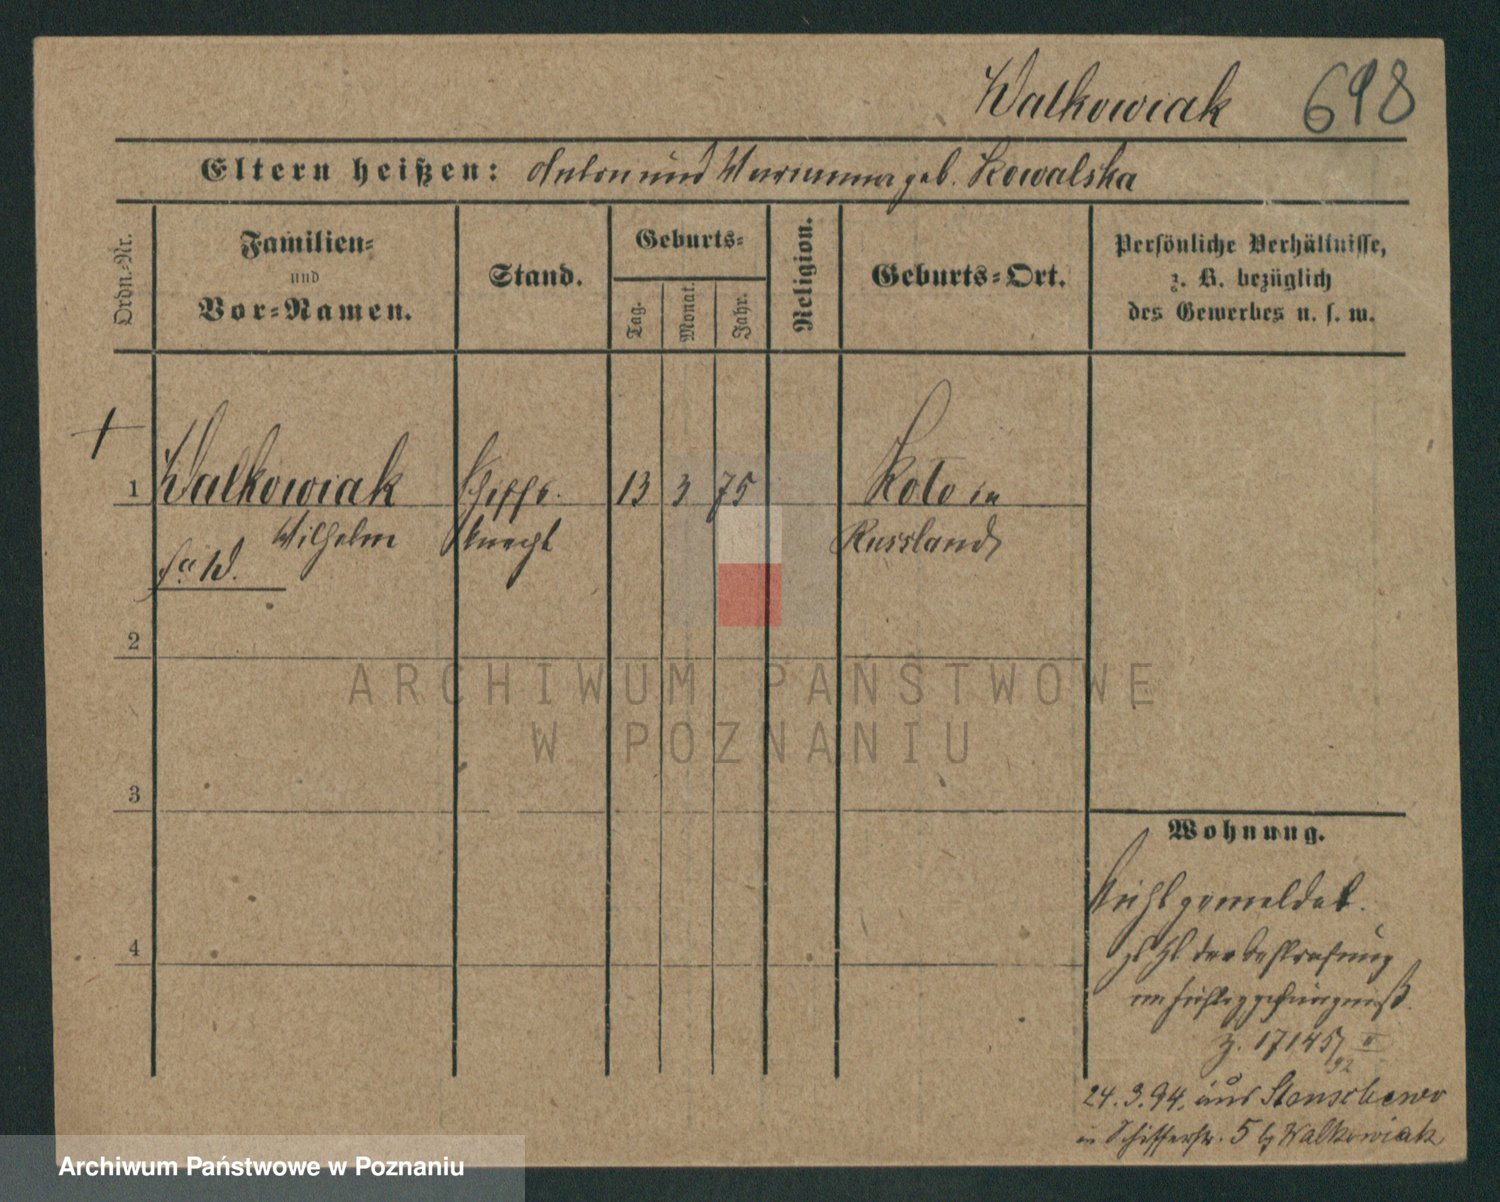 Walkowiak 698
Eltern heißen: Anton und Marianna geb. Kowalska
Ordn.-Nr.
Familien-
und
Vor-Namen.
Stand.
Geburts-
Tag.
Monat.
Jahr.
Religion.
Geburts-Ort.
Persönliche Verhältnisse,
z. B. bezüglich
des Gewerbes u. s. w.
1 Walkowiak Schiffs- 13 3 75 Koło in
Wilhelm knecht Russland
2
3
4
Wohnung.
Nicht gemeldet.
der Bestrafung
im
z. 17145/ II
92
24.3.94. aus Stenschewo
in Schifferstr. 5 b/ Walkowiak
ARCHIWUM PAŃSTWOWE
W POZNANIU
Archiwum Państwowe w Poznaniu